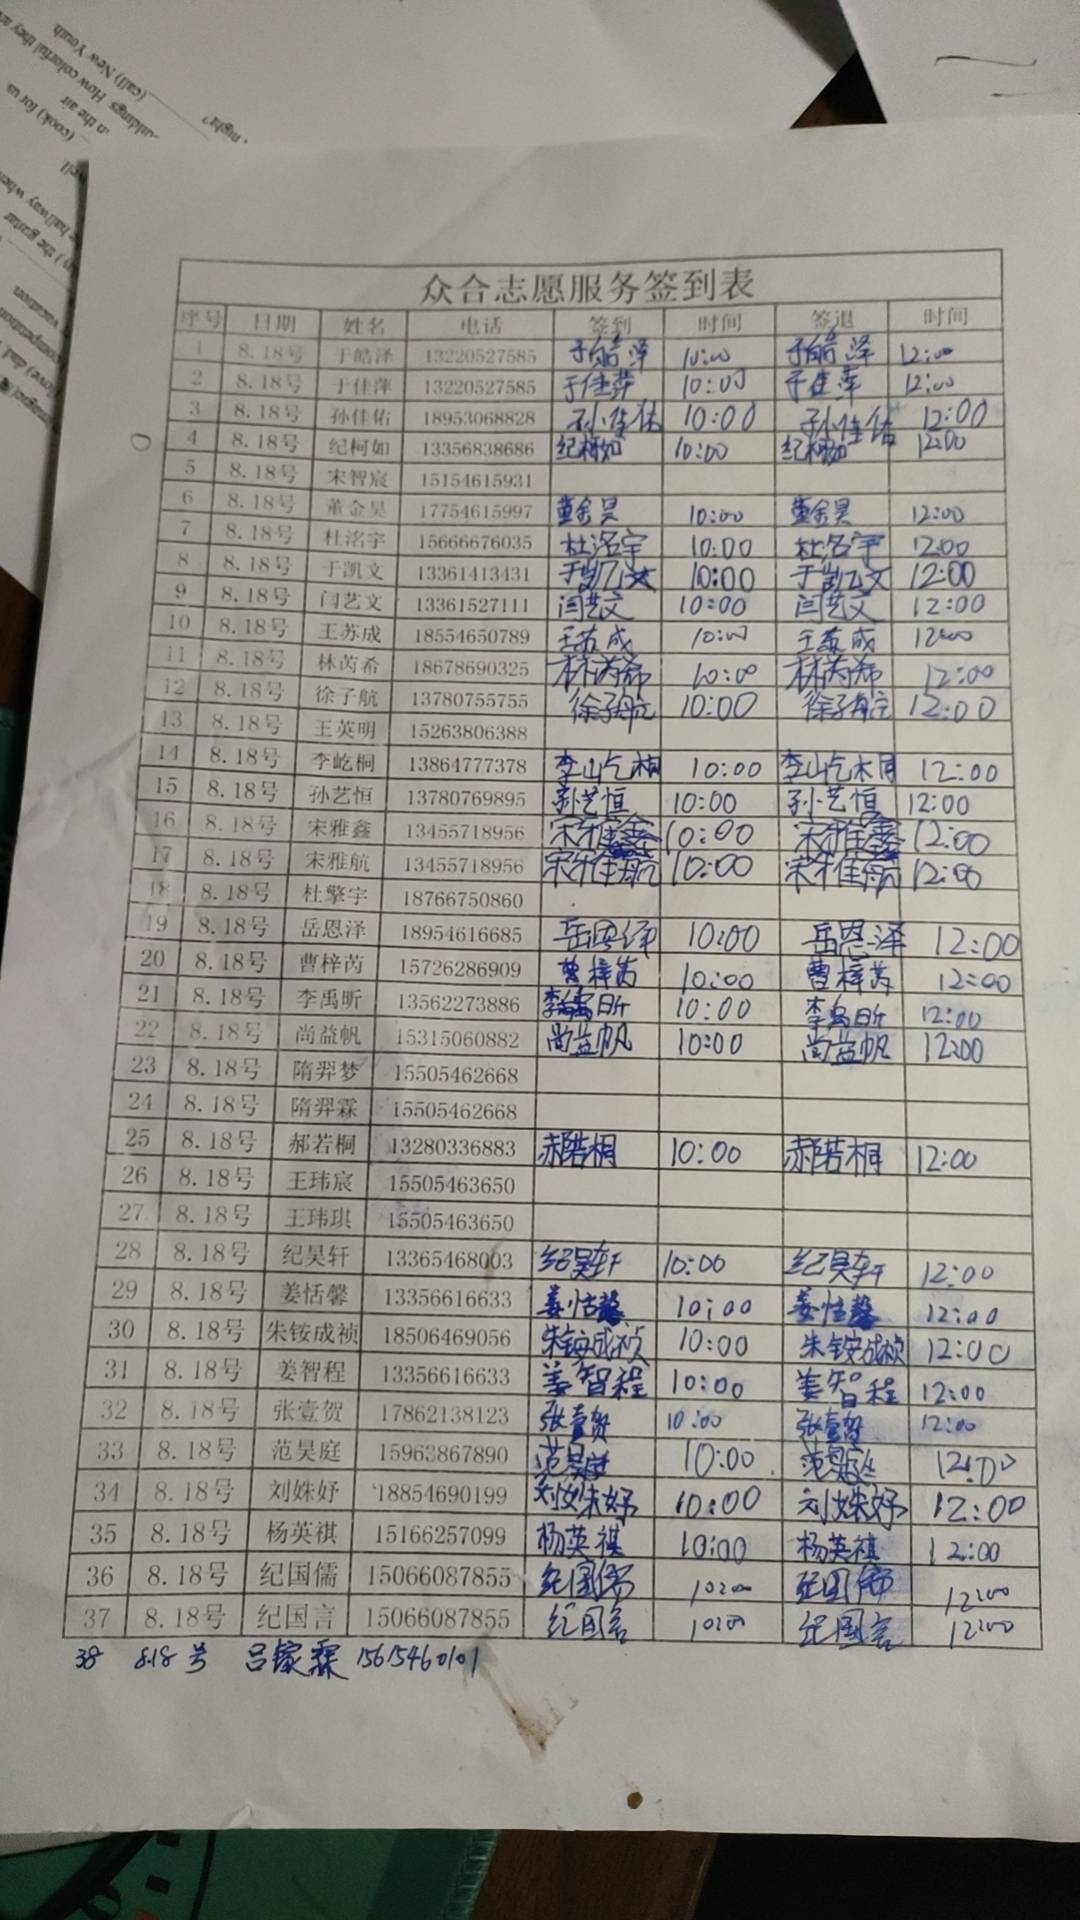 night?
(call) New Youth
buildings. How colorful they are
in the air
(cook) for us.
well
hallway when
the guitar
vacation
众合志愿服务签到表
序号 日期 姓名 电话 签到 时间 签退 时间
1 8.18号 于皓泽 13220527585 于皓泽 10:00 于皓泽 12:00
2 8.18号 于佳萍 13220527585 于佳萍 10:00 于佳萍 12:00
3 8.18号 孙佳佑 18953068828 孙佳佑 10:00 孙佳佑 12:00
4 8.18号 纪柯如 13356838686 纪柯如 10:00 纪柯如 12:00
5 8.18号 宋智宸 15154615931
6 8.18号 董金昊 17754615997 董金昊 10:00 董金昊 12:00
7 8.18号 杜洺宇 15666676035 杜洺宇 10:00 杜洺宇 12:00
8 8.18号 于凯文 13361413431 于凯文 10:00 于凯文 12:00
9 8.18号 闫艺文 13361527111 闫艺文 10:00 闫艺文 12:00
10 8.18号 王苏成 18554650789 王苏成 10:00 王苏成 12:00
11 8.18号 林芮希 18678690325 林芮希 10:00 林芮希 12:00
12 8.18号 徐子航 13780755755 徐子航 10:00 徐子航 12:00
13 8.18号 王英明 15263806388
14 8.18号 李屹桐 13864777378 李屹桐 10:00 李屹桐 12:00
15 8.18号 孙艺恒 13780769895 孙艺恒 10:00 孙艺恒 12:00
16 8.18号 宋雅鑫 13455718956 宋雅鑫 10:00 宋雅鑫 12:00
17 8.18号 宋雅航 13455718956 宋雅航 10:00 宋雅航 12:00
18 8.18号 杜擎宇 18766750860
19 8.18号 岳恩泽 18954616685 岳恩泽 10:00 岳恩泽 12:00
20 8.18号 曹梓芮 15726286909 曹梓芮 10:00 曹梓芮 12:00
21 8.18号 李禹昕 13562273886 李禹昕 10:00 李禹昕 12:00
22 8.18号 尚益帆 15315060882 尚益帆 10:00 尚益帆 12:00
23 8.18号 隋羿梦 15505462668
24 8.18号 隋羿霖 15505462668
25 8.18号 郝若桐 13280336883 郝若桐 10:00 郝若桐 12:00
26 8.18号 王玮宸 15505463650
27 8.18号 王玮琪 15505463650
28 8.18号 纪昊轩 13365468003 纪昊轩 10:00 纪昊轩 12:00
29 8.18号 姜恬馨 13356616633 姜恬馨 10:00 姜恬馨 12:00
30 8.18号 朱铵成祯 18506469056 朱铵成祯 10:00 朱铵成祯 12:00
31 8.18号 姜智程 13356616633 姜智程 10:00 姜智程 12:00
32 8.18号 张壹贺 17862138123 张壹贺 10:00 张壹贺 12:00
33 8.18号 范昊庭 15963867890 范昊庭 10:00 范昊庭 12:00
34 8.18号 刘姝妤 18854690199 刘姝妤 10:00 刘姝妤 12:00
35 8.18号 杨英祺 15166257099 杨英祺 10:00 杨英祺 12:00
36 8.18号 纪国儒 15066087855 纪国儒 10:00 纪国儒 12:00
37 8.18号 纪国言 15066087855 纪国言 10:00 纪国言 12:00
38 8.18号 吕稼霖 15615460101